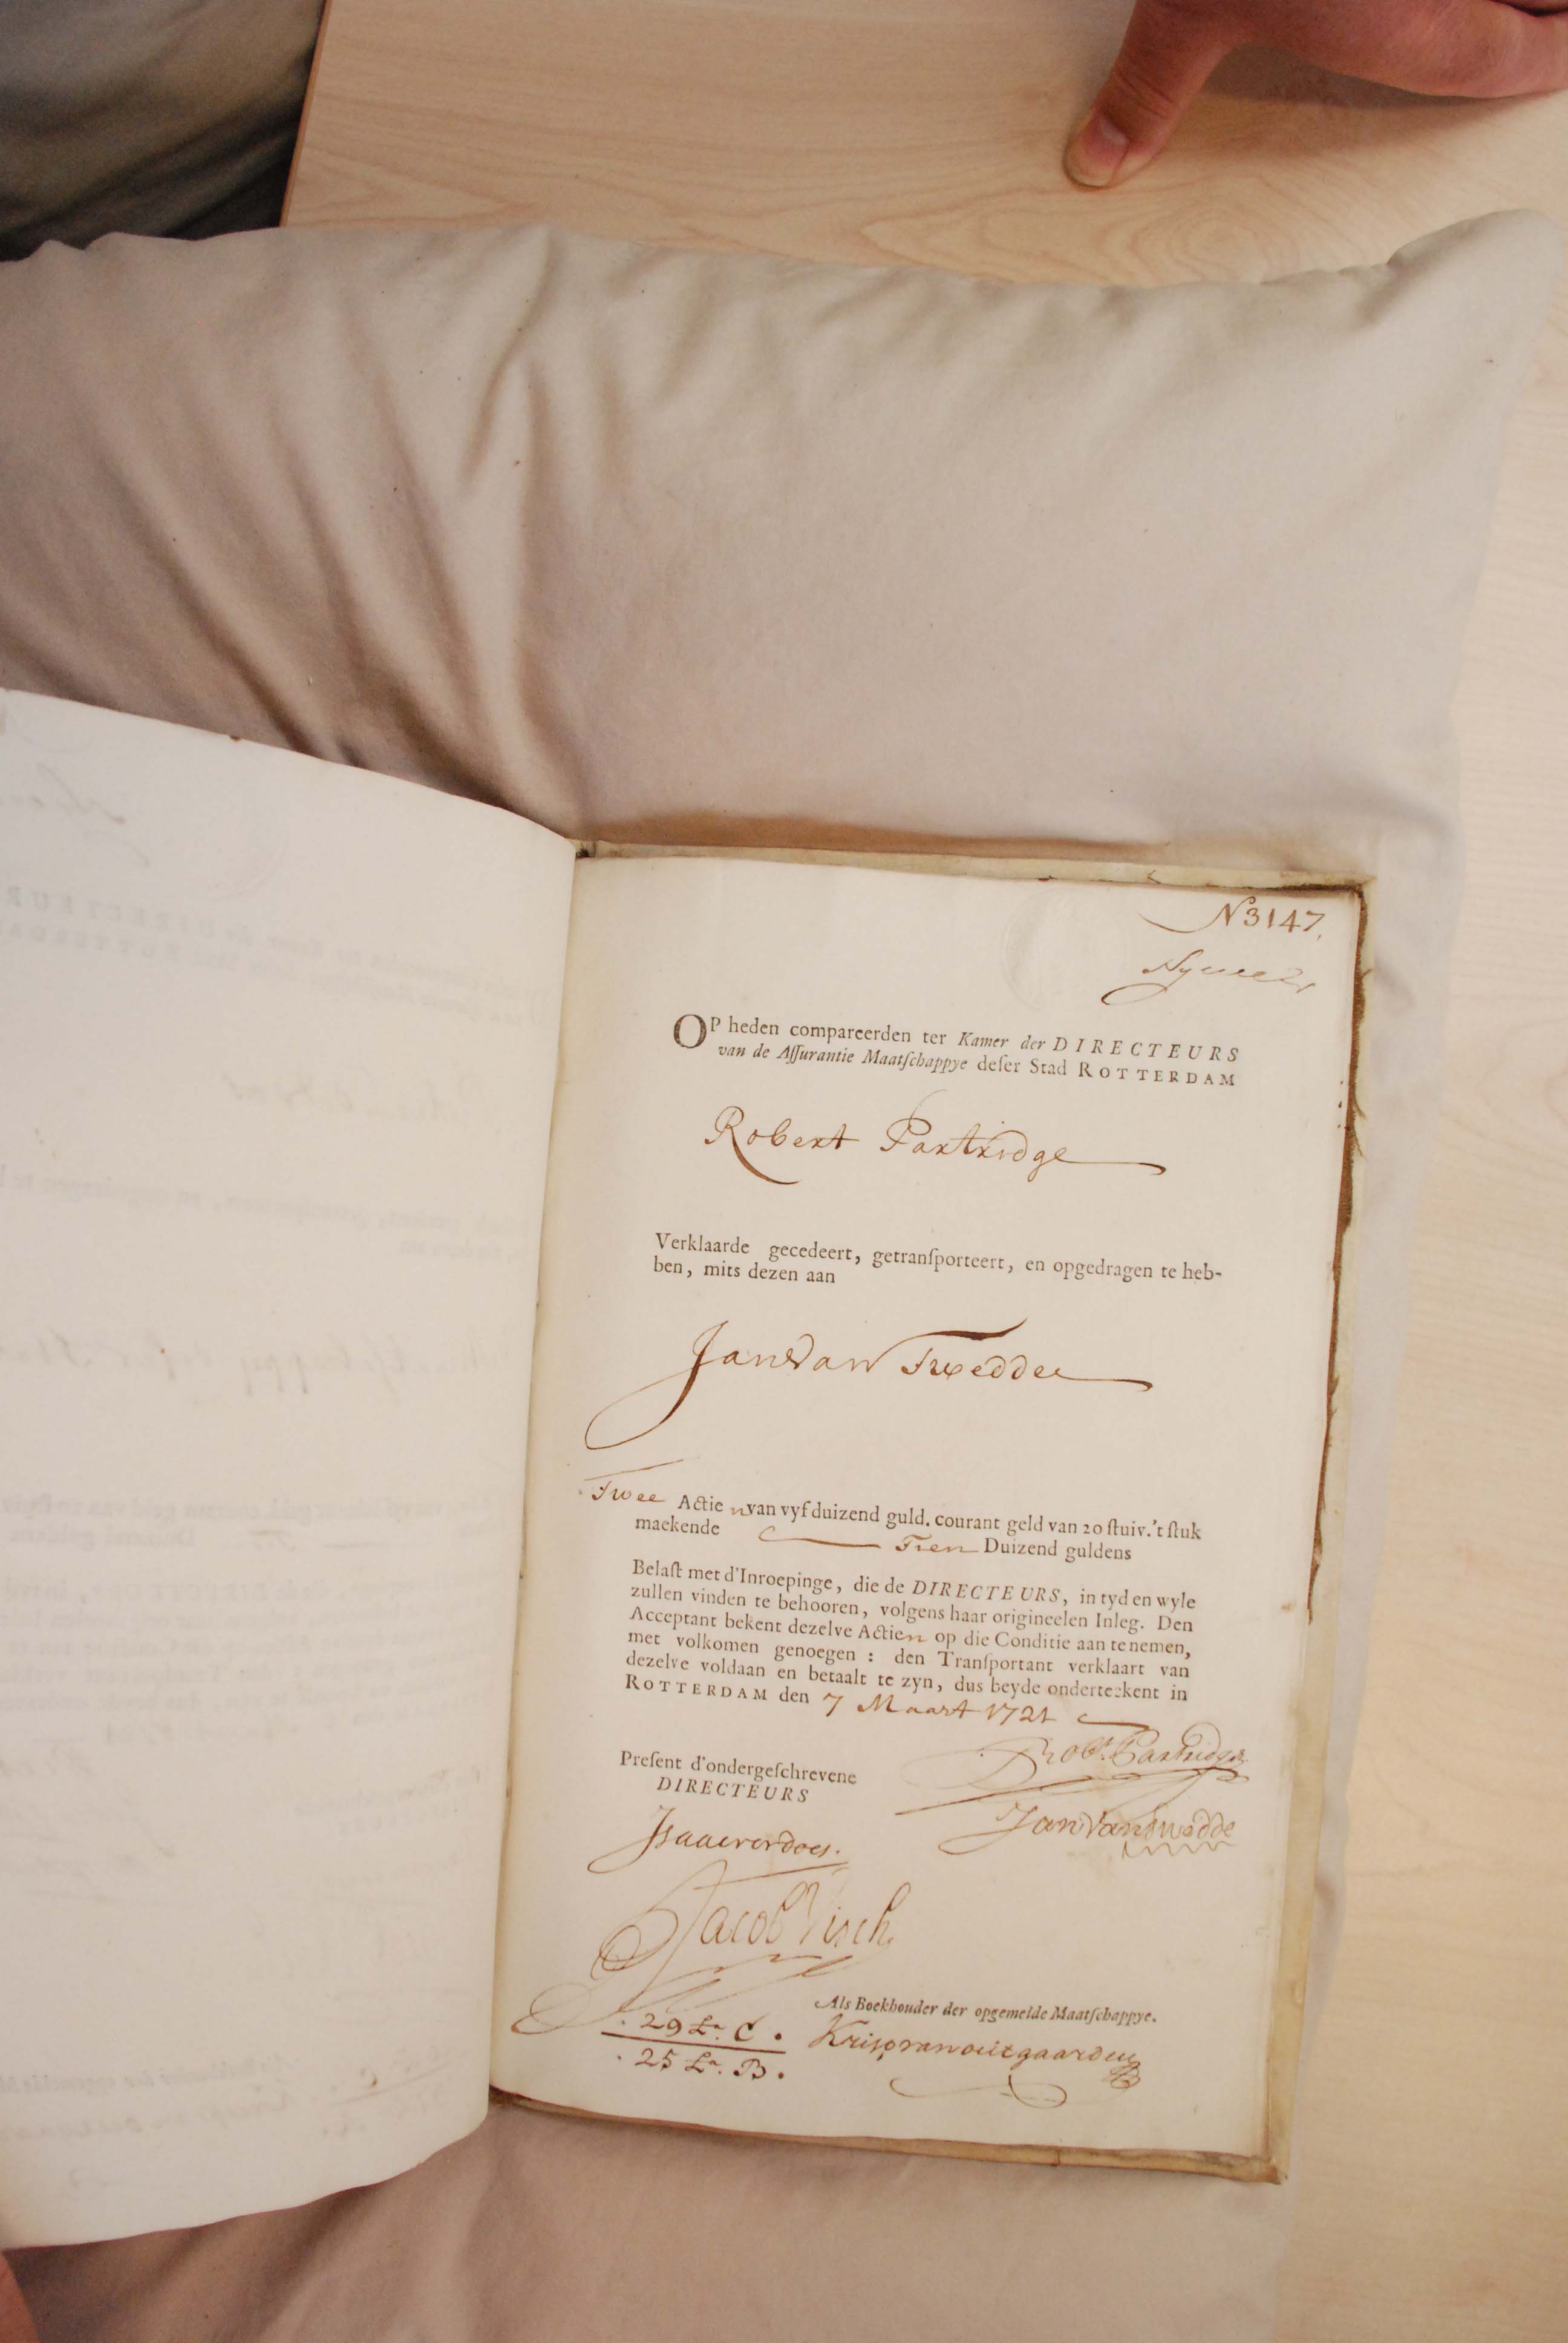 N 3147.
OP heden compareerden ter Kamer der DIRECTEURS
van de Assurantie Maatschappye deser Stad ROTTERDAM
Robert Partridge
Verklaarde gecedeert, getransporteert, en opgedragen te heb-
ben, mits dezen aan
Jan van Twedde
Twee Actie n van vyf duizend guld. courant geld van 20 stuiv. 't stuk
maekende Tien Duizend guldens
Belast met d'Inroepinge, die de DIRECTEURS, in tyd en wyle
zullen vinden te behooren, volgens haar origineelen Inleg. Den
Acceptant bekent dezelve Actien op die Conditie aan te nemen,
met volkomen genoegen : den Transportant verklaart van
dezelve voldaan en betaalt te zyn, dus beyde onderteekent in
ROTTERDAM den 7 Maart 1721
Robt. Partridge
Present d'ondergeschrevene
DIRECTEURS
Jan van Twedde
Isaac verdoes.
Jacob Visch
Als Boekhouder der opgemelde Maatschappye.
29 La. C.
Krisp van outgaarden
25 La. B.